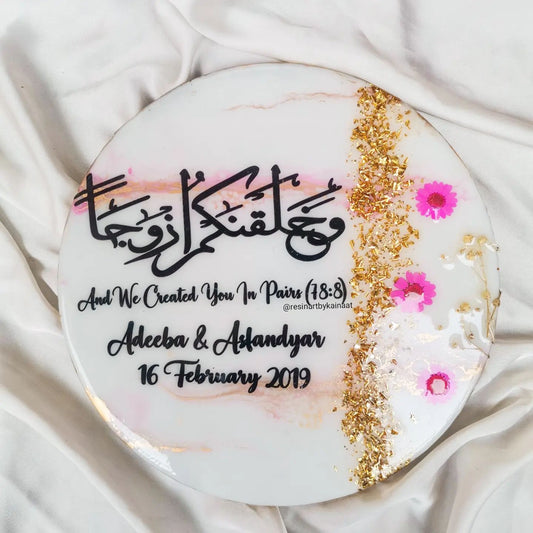 وَخَلَقْنَكُمْ أَزْوَجًا
And We Created You In Pairs (78:8)
@resinartbykainaat
Adeeba & Asfandyar
16 February 2019